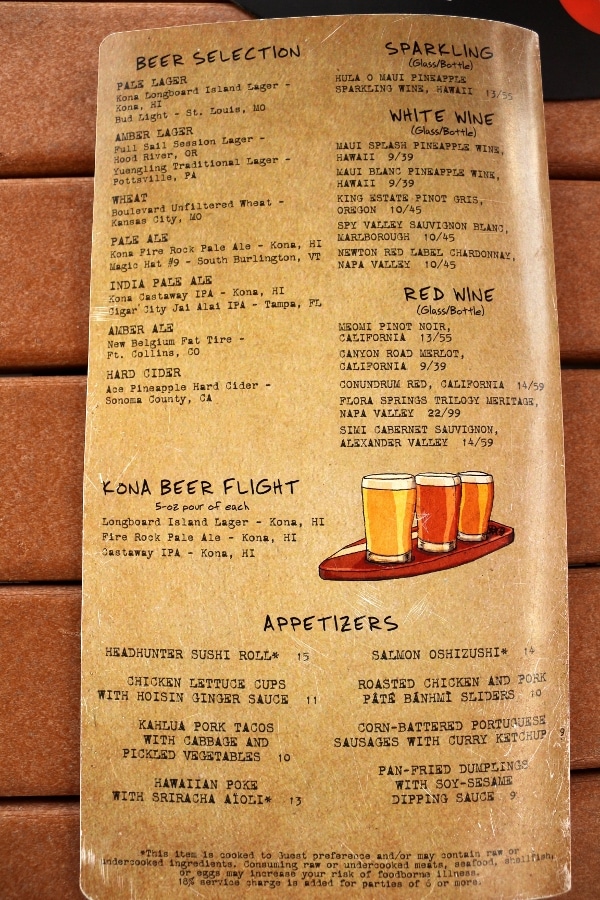 BEER SELECTION
PALE LAGER
Kona Longboard Island Lager -
Kona, HI
Bud Light - St. Louis, MO
AMBER LAGER
Full Sail Session Lager -
Hood River, OR
Yuengling Traditional Lager -
Pottsville, PA
WHEAT
Boulevard Unfiltered Wheat -
Kansas City, MO
PALE ALE
Kona Fire Rock Pale Ale - Kona, HI
Magic Hat #9 - South Burlington, VT
INDIA PALE ALE
Kona Castaway IPA - Kona, HI
Cigar City Jai Alai IPA - Tampa, FL
AMBER ALE
New Belgium Fat Tire -
Ft. Collins, CO
HARD CIDER
Ace Pineapple Hard Cider -
Sonoma County, CA
SPARKLING
(Glass/Bottle)
HULA O MAUI PINEAPPLE
SPARKLING WINE, HAWAII 13/55
WHITE WINE
(Glass/Bottle)
MAUI SPLASH PINEAPPLE WINE,
HAWAII 9/39
MAUI BLANC PINEAPPLE WINE,
HAWAII 9/39
KING ESTATE PINOT GRIS,
OREGON 10/45
SPY VALLEY SAUVIGNON BLANC,
MARLBOROUGH 10/45
NEWTON RED LABEL CHARDONNAY,
NAPA VALLEY 10/45
RED WINE
(Glass/Bottle)
MEOMI PINOT NOIR,
CALIFORNIA 13/55
CANYON ROAD MERLOT,
CALIFORNIA 9/39
CONUNDRUM RED, CALIFORNIA 14/59
FLORA SPRINGS TRILOGY MERITAGE,
NAPA VALLEY 22/99
SIMI CABERNET SAUVIGNON,
ALEXANDER VALLEY 14/59
KONA BEER FLIGHT
5-oz pour of each
Longboard Island Lager - Kona, HI
Fire Rock Pale Ale - Kona, HI
Castaway IPA - Kona, HI
APPETIZERS
HEADHUNTER SUSHI ROLL* 15
CHICKEN LETTUCE CUPS
WITH HOISIN GINGER SAUCE 11
KAHLUA PORK TACOS
WITH CABBAGE AND
PICKLED VEGETABLES 10
HAWAIIAN POKE
WITH SRIRACHA AÏOLI* 13
SALMON OSHIZUSHI* 14
ROASTED CHICKEN AND PORK
PÂTÉ BÁNHMÌ SLIDERS 10
CORN-BATTERED PORTUGUESE
SAUSAGES WITH CURRY KETCHUP 9
PAN-FRIED DUMPLINGS
WITH SOY-SESAME
DIPPING SAUCE 9
*This item is cooked to Guest preference and/or may contain raw or
undercooked ingredients. Consuming raw or undercooked meats, seafood, shellfish,
or eggs may increase your risk of foodborne illness.
18% service charge is added for parties of 6 or more.